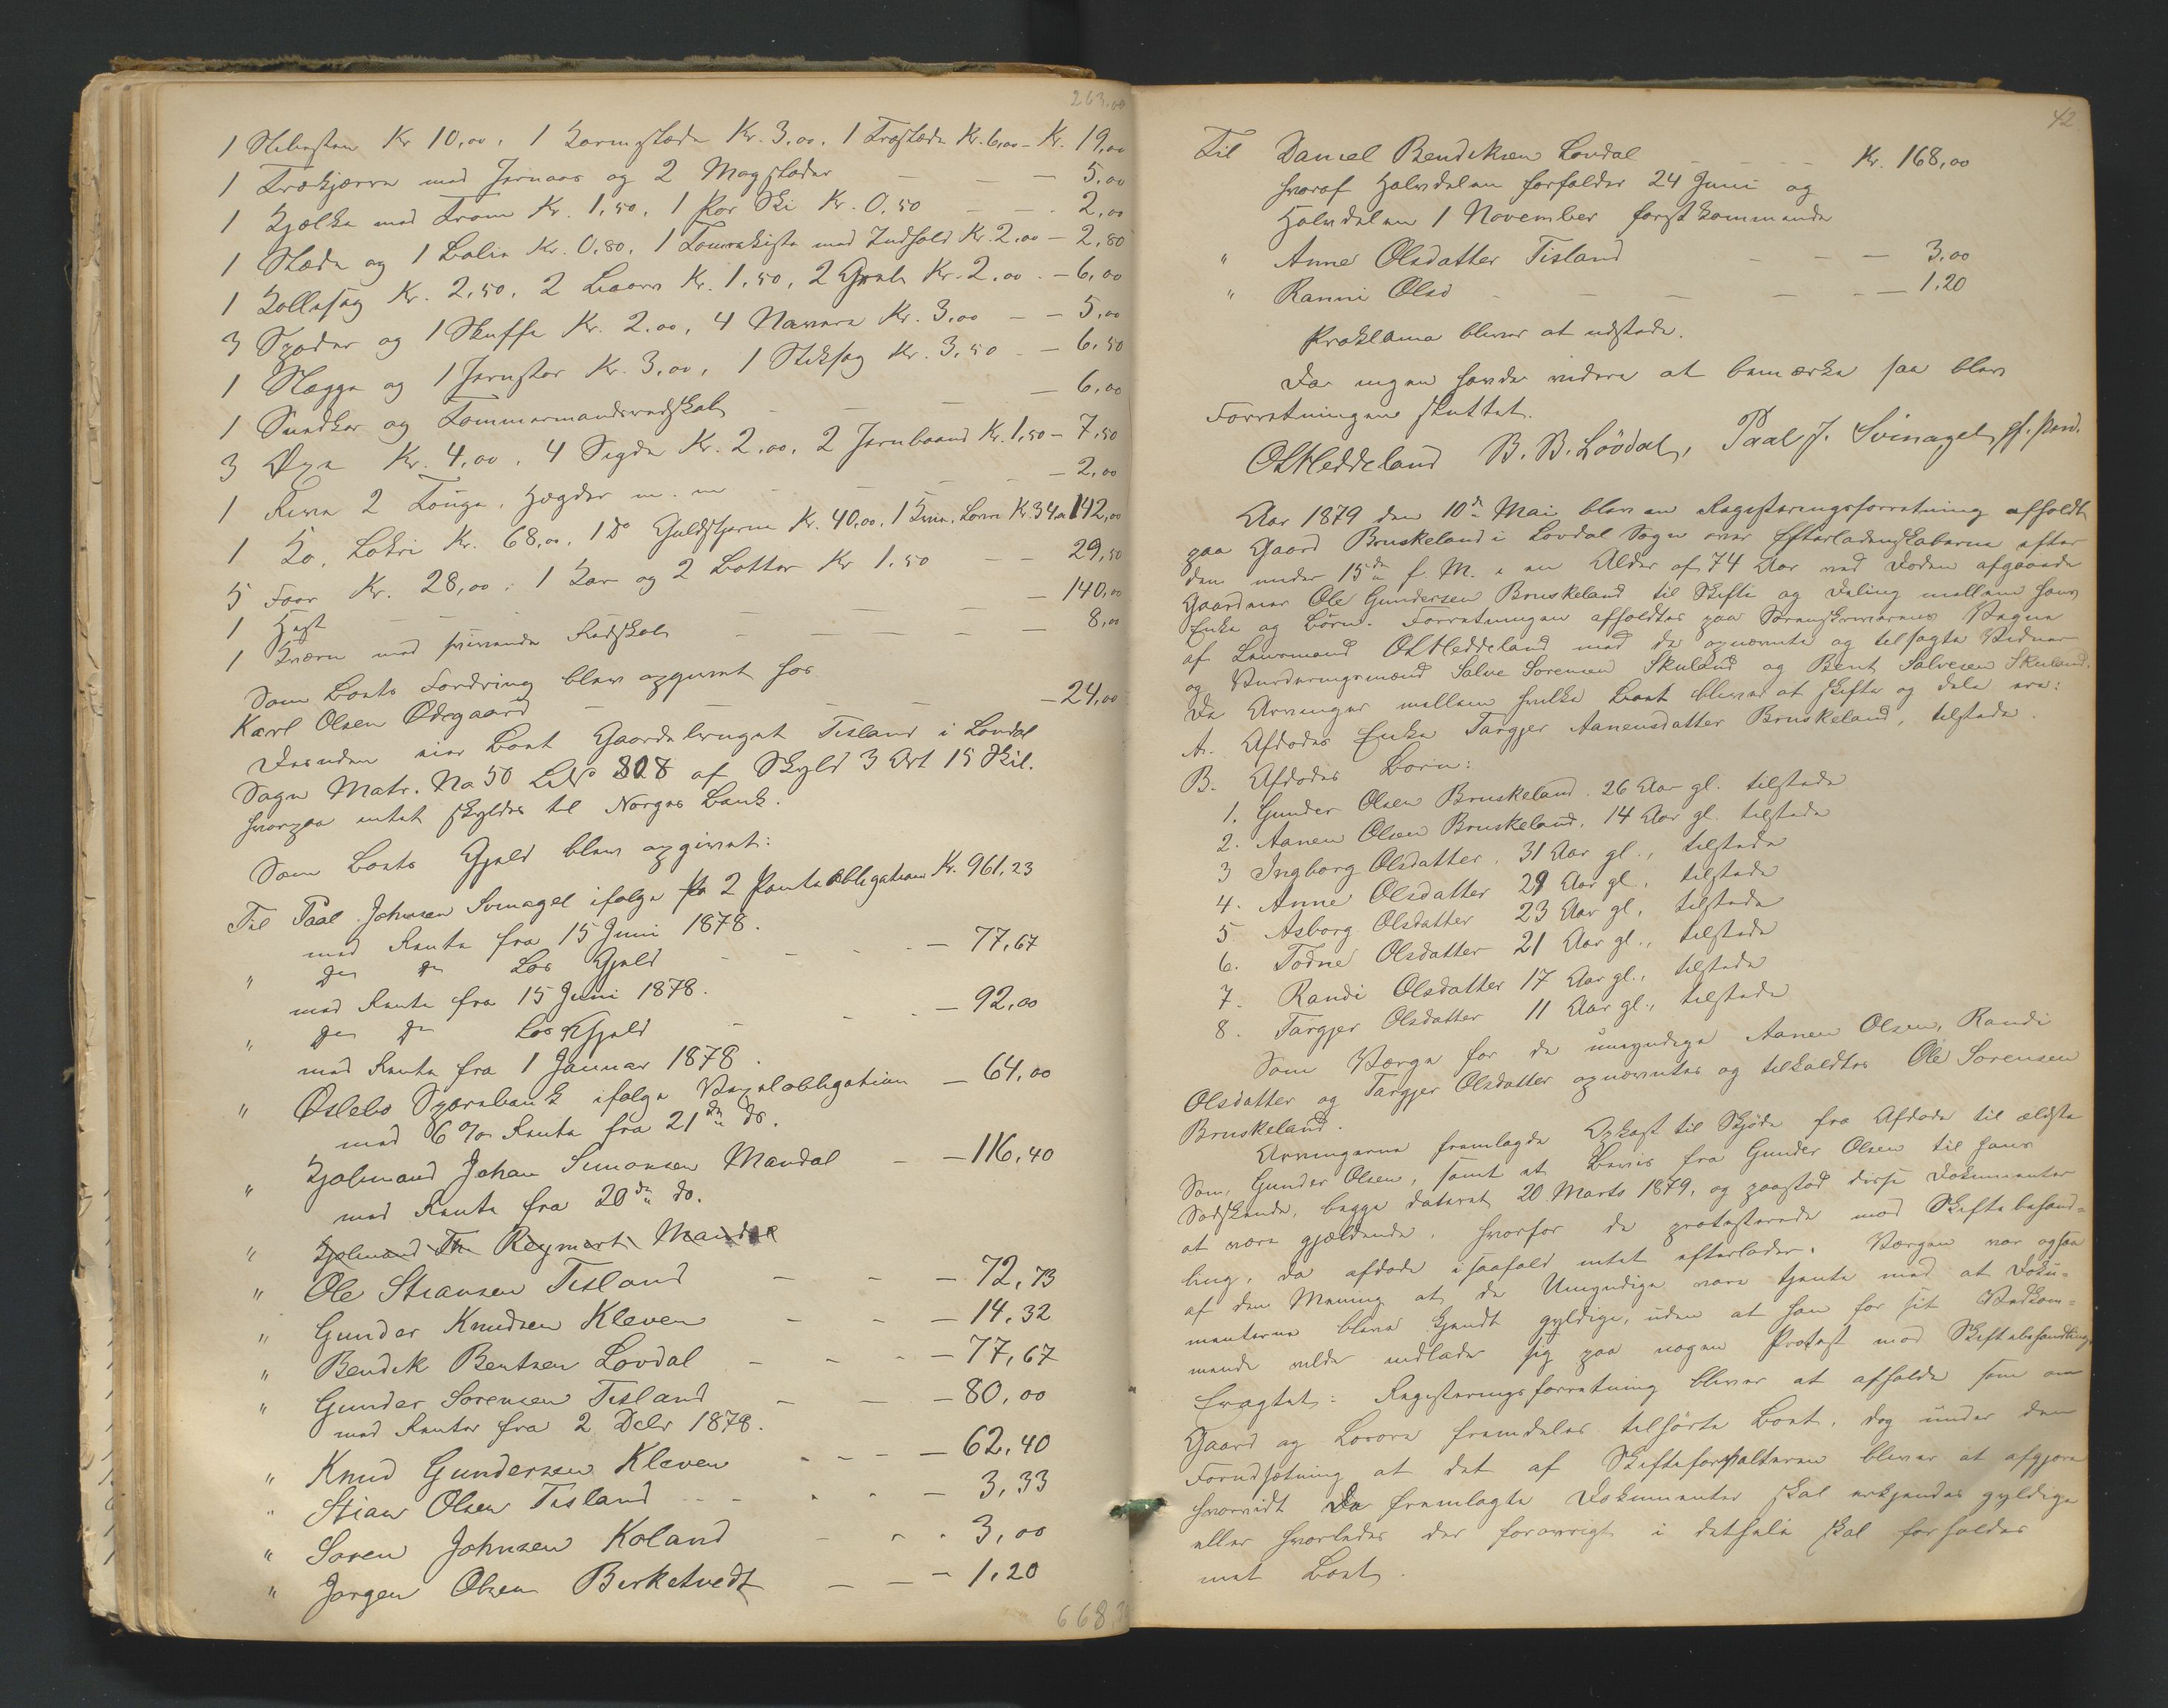 263,00
1 Slibesten Kr 10,00, 1 Kornslæde Kr. 3,00, 1 Træslæde Kr. 6,00 - Kr. 19,00
1 Trækjærre med Jernaas og 2 Mogslæder - - - 5,00
1 Kjælke med Krone Kr. 1,50, 1 Par Ski Kr. 0,50 - - 2,00
1 Slæde og 1 Balie Kr. 0,80, 1 med Indhold Kr. 2,00 - 2,80
1 Kollesag Kr. 2,50, 2 Kr. 1,50, 2 Kr. 2,00 - 6,00
3 Spader og 1 Skuffe Kr. 2,00, 4 Navere Kr. 3,00 - - 5,00
1 Slægge og 1 Jernstør Kr. 3,00, 1 Stiksag Kr. 3,50 - - 6,50
1 og Tømmermandsredskab - - - 6,00
3 Øxe Kr. 4,00, 4 Sigde Kr. 2,00, 2 Jernbaand Kr. 1,50 - 7,50
1 2 m. m - - - 2,00
1 Ko, Kr. 68,00, 1 Do Guldstjerne Kr. 40,00, 1 Kr. 34,00 142,00
5 Faar Kr. 28,00, 1 Kar og 2 Bøtter Kr 1.50 - - 29,50
1 Hest - - - 140,00
1 Kværn med Redskab - - - 8,00
Som Boets Fordring blev opgivet hos
Karl Olsen Ødegaard - - - 24,00
Desuden eier Boet Gaardebruget Tisland i Løvdal
Sogn Matr. No 50 LNo 808 af Skyld 3 Ort 15 Skil.
hvorpaa intet skyldes til Norges Bank.
Som Boets Gjæld blev opgivet:
Til Paal Johnsen Svinagel ifølge 2 Panteobligationer Kr. 961,23
med Rente fra 15 Juni 1878.
" Do Do Løs Gjæld - - - 77,67
med Rente fra 15 Juni 1878.
" Do Do Løs Gjæld - - - 92,00
med Rente fra 1 Januar 1878.
" Øslebø Sparebank ifølge Vexelobligation - 64,00
med 6% Rente fra 21de ds.
" Kjøbmand Johan Simonsen Mandal - - 116,40
med Rente fra 20de ds.
" Kjøbmand Th Reymert Mandal
" Ole Stiansen Tisland - - - 72,73
" Gunder Knudsen Kleven - - - 14,32
" Bendik Bentsen Løvdal - - - 77,67
" Gunder Sørensen Tisland - - - 80,00
med Renter fra 2 Debr 1878.
" Knud Gundersen Kleven - - - 62,40
" Stian Olsen Tisland - - - 3,33
" Søren Johnsen Koland - - - 3,00
" Jørgen Olsen Birketvedt - - - 1,20
668,3
42
Til Daniel Bendiksen Løvdal - - - Kr. 168,00
hvoraf Halvdelen forfalder 24 Juni og
Halvdelen 1 November førstkommende
" Anne Olsdatter Tisland - - - 3,00
" Ranni Olsd - - - 1,20
Proklama bliver at udstede.
Da ingen havde videre at bemærke saa blev
Forretningen sluttet.
OLHeddeland B. B. Löödal, Paal J. Svinagel, pf. Pen.
Aar 1879 den 10de Mai blev en Registreringsforretning afholdt
paa Gaard Bruskeland i Løvdal Sogn over Efterladenskaberne efter
den under 15de f. M. i en Alder af 74 Aar ved Døden afgaaede
Gaardmand Ole Gundersen Bruskeland til Skifte og Deling mellem hans
Enke og Børn. Forretningen afholdtes paa Sorenskriverens Vegne
af Lensmand OLHeddeland med de opnævnte og tilsagte Vidner
og Vurderingsmænd Salve Sorensen Skuland og Bent Salvesen Skuland.
De Arvinger mellem hvilke Boet bliver at skifte og dele ere:
A. Afdødes Enke Targjer Aanensdatter Bruskeland, tilstede.
B. Afdødes Børn:
1. Gunder Olsen Bruskeland, 26 Aar gl. tilstede
2. Aanen Olsen Bruskeland, 14 Aar gl. tilstede
3 Ingborg Olsdatter, 31 Aar gl., tilstede
4. Anne Olsdatter 29 Aar gl., tilstede
5 Asborg Olsdatter 23 Aar gl., tilstede
6. Todne Olsdatter 21 Aar gl., tilstede
7. Randi Olsdatter 17 Aar gl., tilstede
8. Targjer Olsdatter 11 Aar gl., tilstede
Som Værge for de umyndige Aanen Olsen, Randi
Olsdatter og Targjer Olsdatter opnævntes og tilkaldtes Ole Sorensen
Bruskeland.
Arvingerne fremlagde Opkast til Skjøde fra Afdøde til ældste
Søn, Gunder Olsen, samt et Bevis fra Gunder Olsen til hans
Sødskende, begge dateret 20 Marts 1879, og paastod disse Dokumenter
at være gjældende, hvorfor de protesterede mod Skiftebehand=
ling, da afdøde isaafald intet efterlader. Værgen var ogsaa
af den Mening at de Umyndige vare tjente med at Doku=
menterne bleve kjendt gyldige, uden at han for sit Vedkom=
mende vilde indlade sig paa nogen Protest mod Skiftebehandling.
Eragtet: Registreringsforretning bliver at afholde som om
Gaard og Løsøre fremdeles tilhørte Boet, dog under den
Forudsætning at det af Skifteforvalteren bliver at afgjøre
hvorvidt De fremlagte Dokumenter skal erkjendes gyldige
eller hvorledes der forøvrigt i dethele skal forholdes
met Boet.